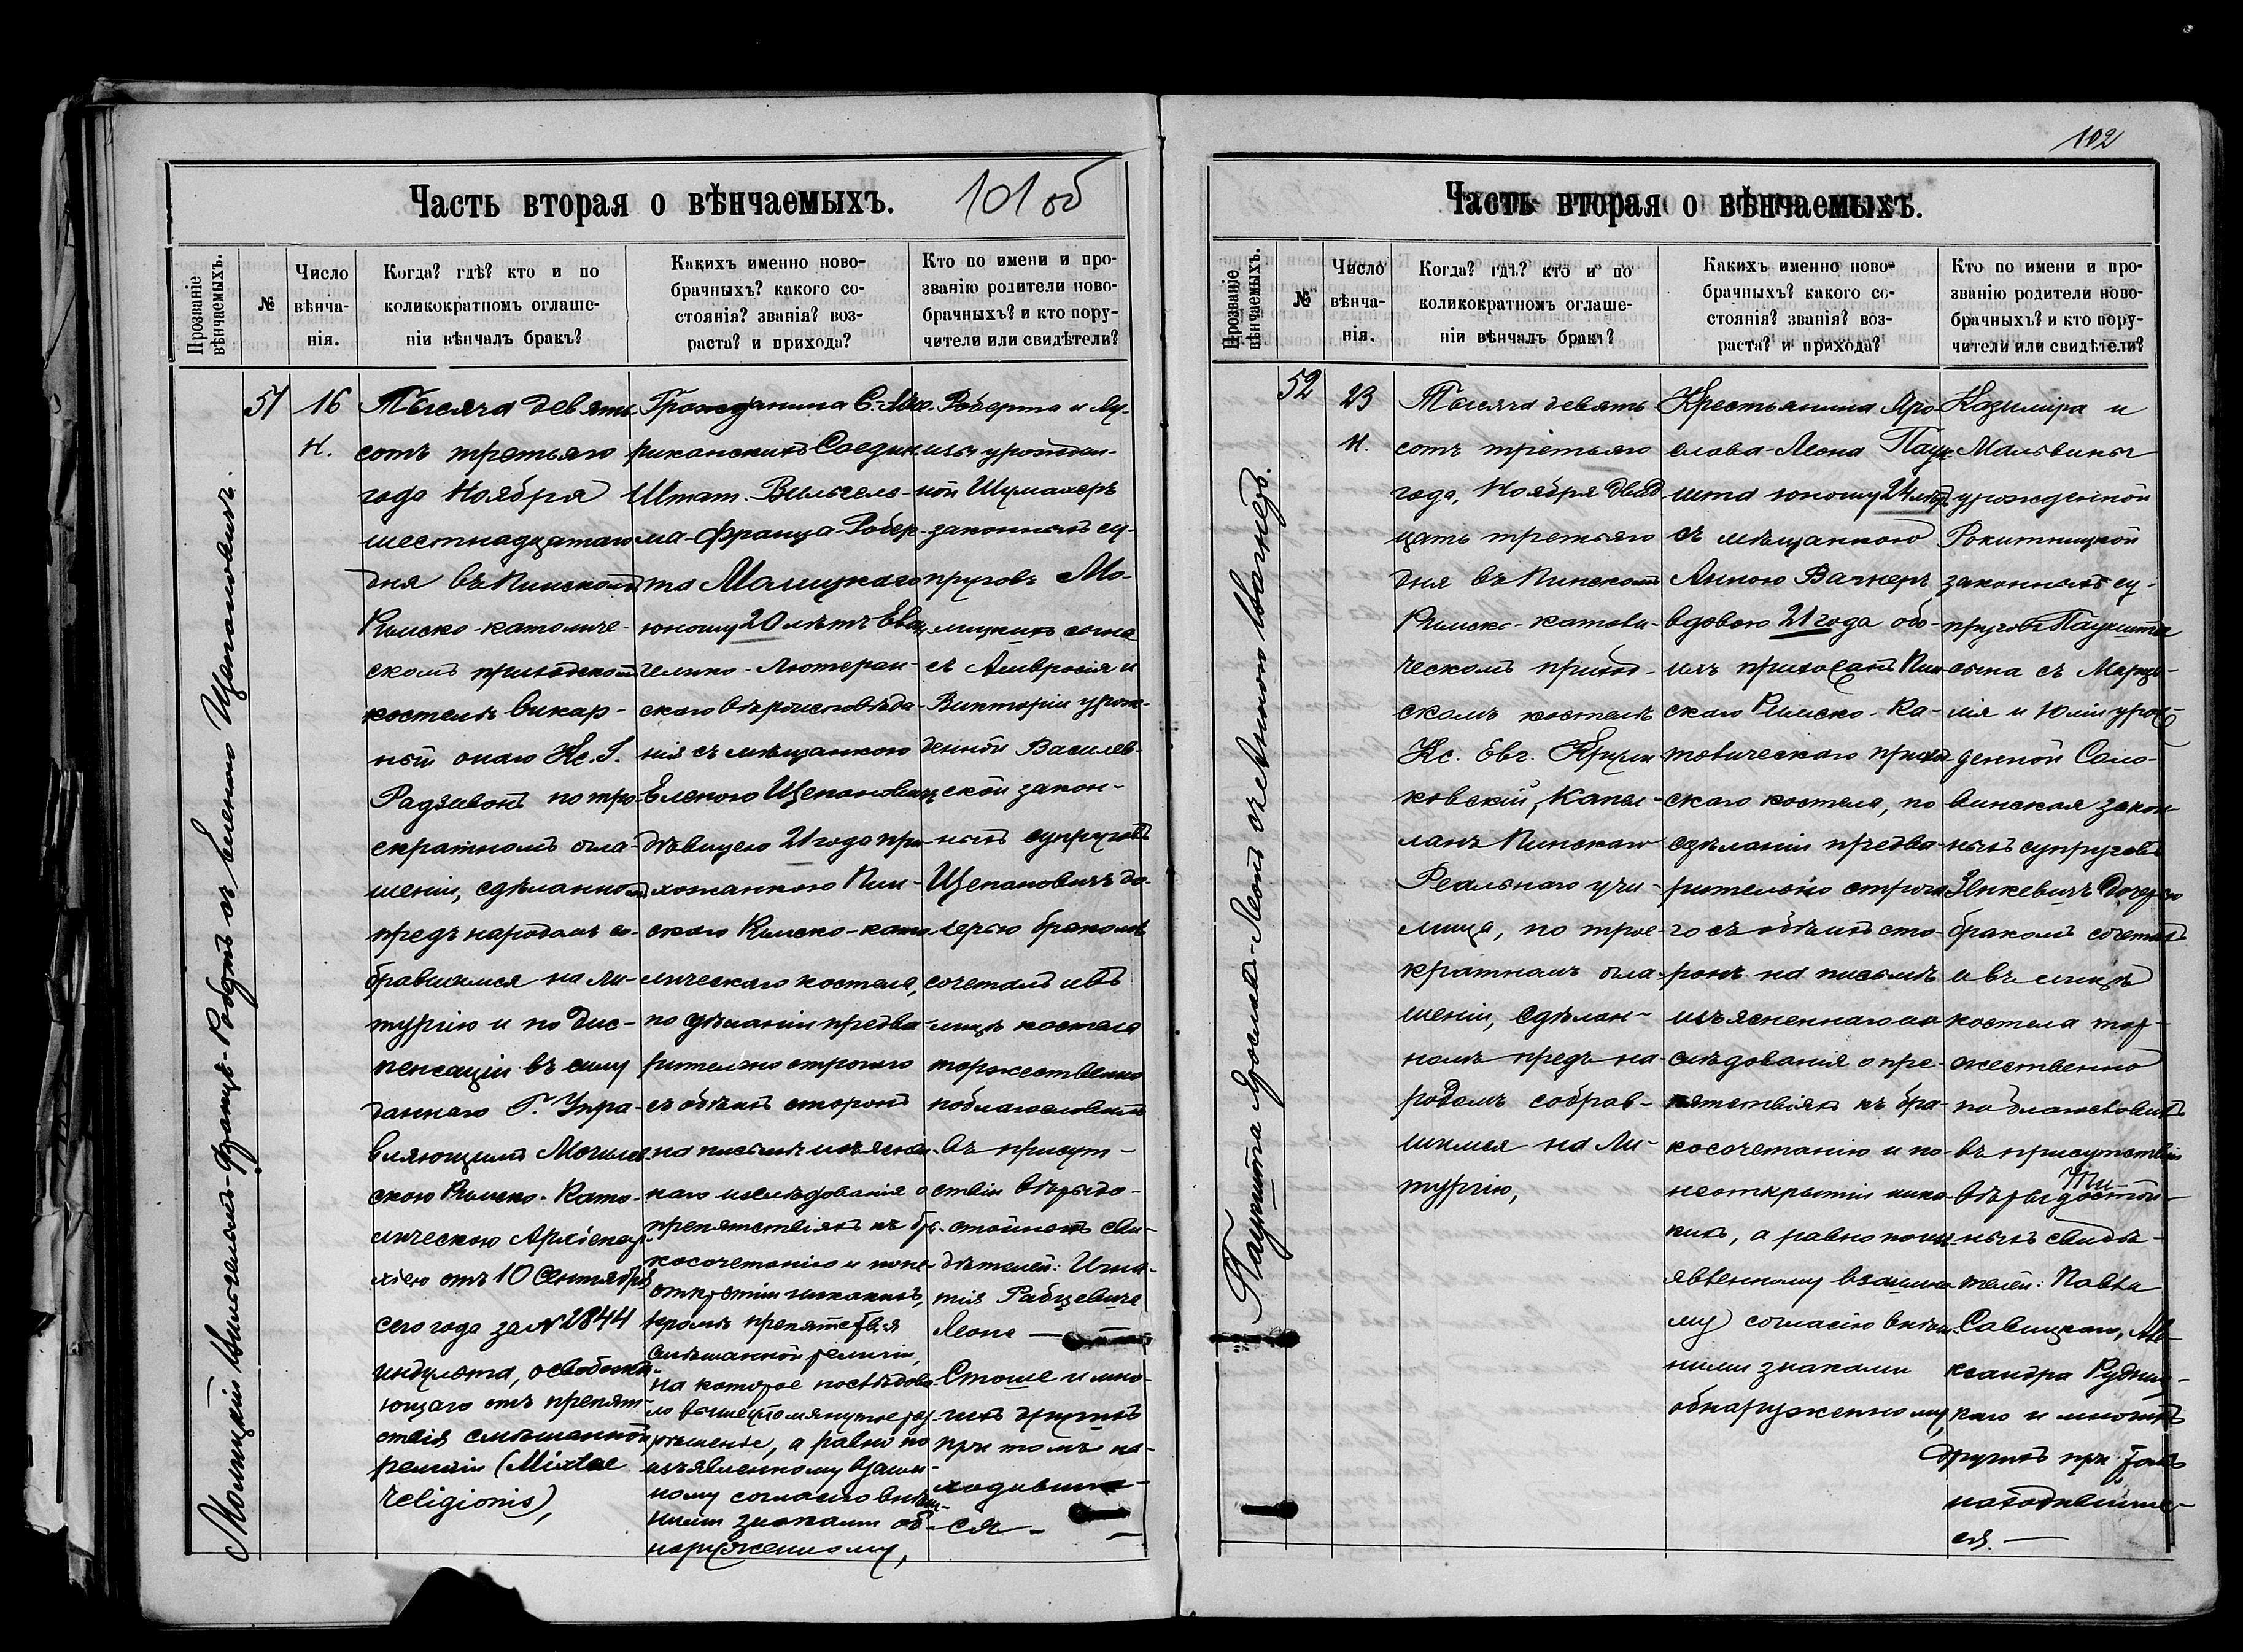 102
Часть вторая о вѣнчаемыхъ.
101 об
Прозваніе вѣнчаемыхъ.
№
Число вѣнча-
нія.
Когда? гдѣ? кто и по
коликократномъ оглаше-
ніи вѣнчалъ бракъ?
Какихъ именно ново-
брачныхъ? какого со-
стоянія? званія? воз-
раста? и прихода?
Кто по имени и про-
званію родители ново-
брачныхъ? и кто пору-
чители или свидѣтели?
Молицкій Вильгельмъ-Францъ-Робертъ съ Еленою Щепановичъ.
51
16
Н.
Тысяча девять
сотъ третьяго
года Ноября
шестнадцатаго
дня въ Пинскомъ
Римско-католиче-
скомъ приходскомъ
костелѣ викар-
ный онаго Кс. І.
Радзивонъ по тро-
екратномъ огла-
шеніи, сдѣланномъ
предъ народомъ со-
бравшимся на ли-
тургію и по дис-
пенсаціи въ силу
даннаго Г. Упра-
вляющимъ Могилев-
скою Римско-Като-
лическою Архіепар-
хіею отъ 10 Сентября
сего года за № 2844
индульта, освобожда-
ющаго отъ препят-
ствія смѣшанной
религіи (Mixtae
religionis),
Гражданина С.-Аме-
риканскихъ Соедин.
Штат. Вильгель-
ма-Франца-Робер-
та Молицкаго
юношу 20 лѣтъ Еван-
гелико-Лютеран-
скаго вѣроисповѣда-
нія съ мѣщанкою
Еленою Щепановичъ
дѣвицею 21 года при-
хожанкою Пин-
скаго Римско-като-
лическаго костела,
по сдѣланіи предва-
рительно строгаго
съ обѣихъ сторонъ
на письмѣ изъяснен-
наго изслѣдованія о
препятствіяхъ къ бра-
косочетанію и по не-
открытіи никакихъ,
кромѣ препятствія
смѣшанной религіи,
на которое послѣдова-
ло вышеупомянутое раз-
рѣшеніе, а равно по
изъявленному взаим-
ному согласію внѣш-
ними знаками об-
наруженному,
Роберта и Лу-
изы урожден-
ной Шумахеръ
законныхъ су-
пруговъ Мо-
лицкихъ сына
съ Амвросія и
Викторіи урож-
денной Василев-
ской закон-
ныхъ супруговъ
Щепановичъ до-
черью бракомъ
сочеталъ и въ
лицѣ костела
торжественно
поблагословилъ
въ присут-
ствіи вѣрыдо-
стойныхъ сви-
дѣтелей: Игна-
тія Рабцевича
Леона —
Стоше и мно-
гихъ другихъ
при томъ на-
ходивших-
ся —
Часть вторая о вѣнчаемыхъ.
Прозваніе вѣнчаемыхъ.
№
Число вѣнча-
нія.
Когда? гдѣ? кто и по
коликократномъ оглаше-
ніи вѣнчалъ бракъ?
Какихъ именно ново-
брачныхъ? какого со-
стоянія? званія? воз-
раста? и прихода?
Кто по имени и про-
званію родители ново-
брачныхъ? и кто пору-
чители или свидѣтели?
Паукшта Ярославъ-Леонъ съ Анною Вагнеръ.
52
23
Н.
Тысяча девять-
сотъ третьяго
года, Ноября двад-
цать третьяго
дня въ Пинскомъ
Римско-католи-
ческомъ приход-
скомъ костелѣ
Кс. Евг.
ковскій, Капел-
ланъ Пинскаго
Реальнаго учи-
лища, по трое-
кратномъ огла-
шеніи, сдѣлан-
номъ предъ на-
родомъ собрав-
шимся на Ли-
тургію,
Крестьянина Яро-
слава-Леона Паук-
шта юношу 24 лѣтъ
съ мѣщанкою
Анною Вагнеръ
вдовою 21 года обо-
ихъ прихожанъ Пин-
скаго Римско-Ка-
толическаго приход-
скаго костела, по
сдѣланіи предва-
рительно строга-
го съ обѣихъ сто-
ронъ на письмѣ
изъясненнаго из-
слѣдованія о пре-
пятствіяхъ къ бра-
косочетанію и по
неоткрытіи ника-
кихъ, а равно по изъ-
явленному взаимно-
му согласію внѣш-
ними знаками
обнаруженному,
Казиміра и
Мальвины
урожденной
Рокитницкой
законныхъ су-
пруговъ Паукшта
сына съ Марце-
лія и Юліи урож-
денной Сало-
винская закон-
ныхъ супруговъ
Зенкевичъ дочерью
бракомъ сочеталъ
и въ лицѣ
костела тор-
жественно
поблагословилъ
въ присутствіи
вѣрыдостой-
ныхъ свидѣ-
телей: Павла
Савицкаго, Але-
ксандра Рудниц-
каго и многихъ
другихъ при томъ
находившихся
ся. —